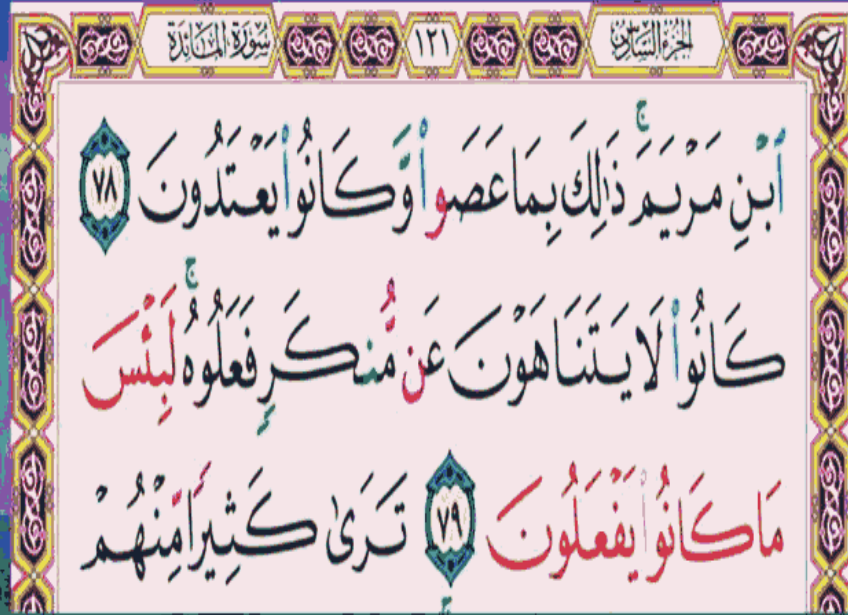 الجزء السادس ١٢١ سورة المائدة
ٱبْنِ مَرْيَمَۚ ذَٰلِكَ بِمَا عَصَوا۟ وَّكَانُوا۟ يَعْتَدُونَ ٧٨
كَانُوا۟ لَا يَتَنَاهَوْنَ عَن مُّنكَرٍ فَعَلُوهُۚ لَبِئْسَ
مَا كَانُوا۟ يَفْعَلُونَ ٧٩ تَرَىٰ كَثِيرًا مِّنْهُمْ